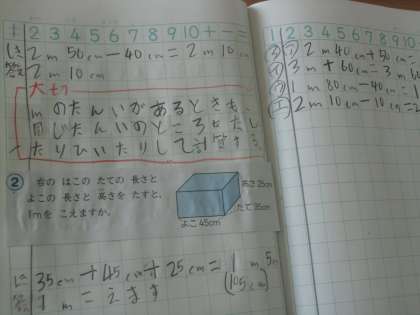 1 2 3 4 5 6 7 8 9 10 + - =
しき 2m 50cm - 40cm = 2m 10cm
答え 2m 10cm
大切
mのたんいがあるときも、
同じたんいのところをたし
たりひいたりして計算する
2 右の はこの たての 長さと
よこの 長さと 高さを たすと、
1mを こえますか。
高さ25cm
たて35cm
よこ45cm
しき 35cm + 45cm + 25cm = 1m 5cm
(105cm)
答え 1m = こえます
1 2 3 4 5 6 7 8 9 10
2m 40cm + 50cm =
3m + 60cm = 3m 6
1m 80cm - 40cm = 1
2m 10cm - 10cm = 2